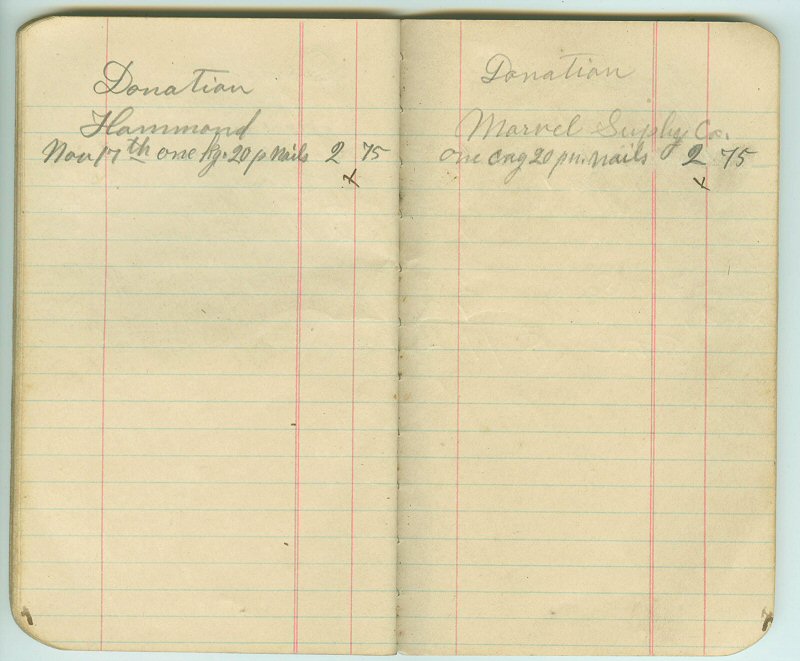 Donation
Hammond
Nov 17th one kg. 20 p Nails 2 75
x
Donation
Marvel Suply Co.
one 20 pn. nails 2 75
x